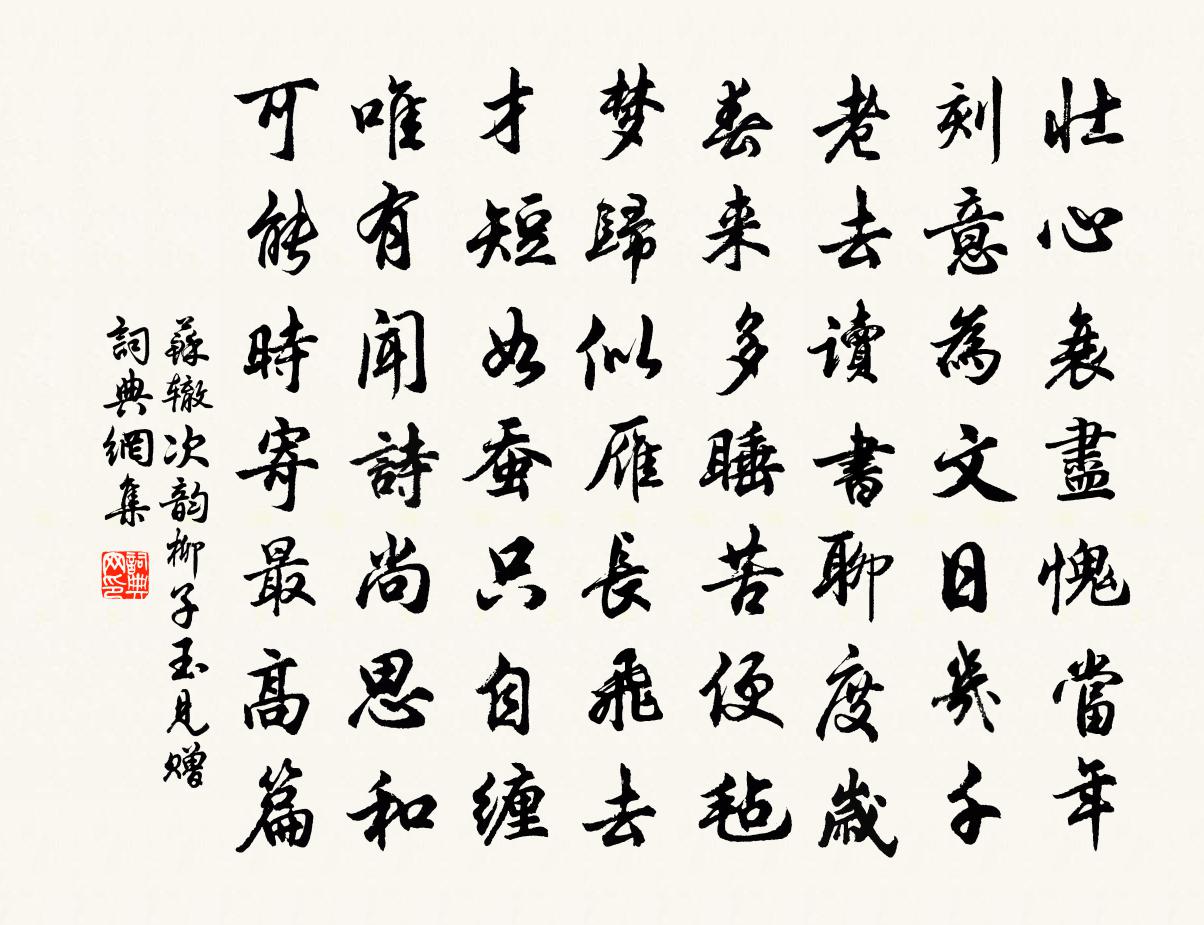 壯心衰盡愧當年
刻意為文日幾千
老去讀書聊度歲
春来多睡苦便毡
梦歸似雁長飛去
才短如蚕只自缠
唯有聞詩尚思和
可能時寄最高篇
蘇辙次韵柳子玉見赠
詞典網集
詞典网印